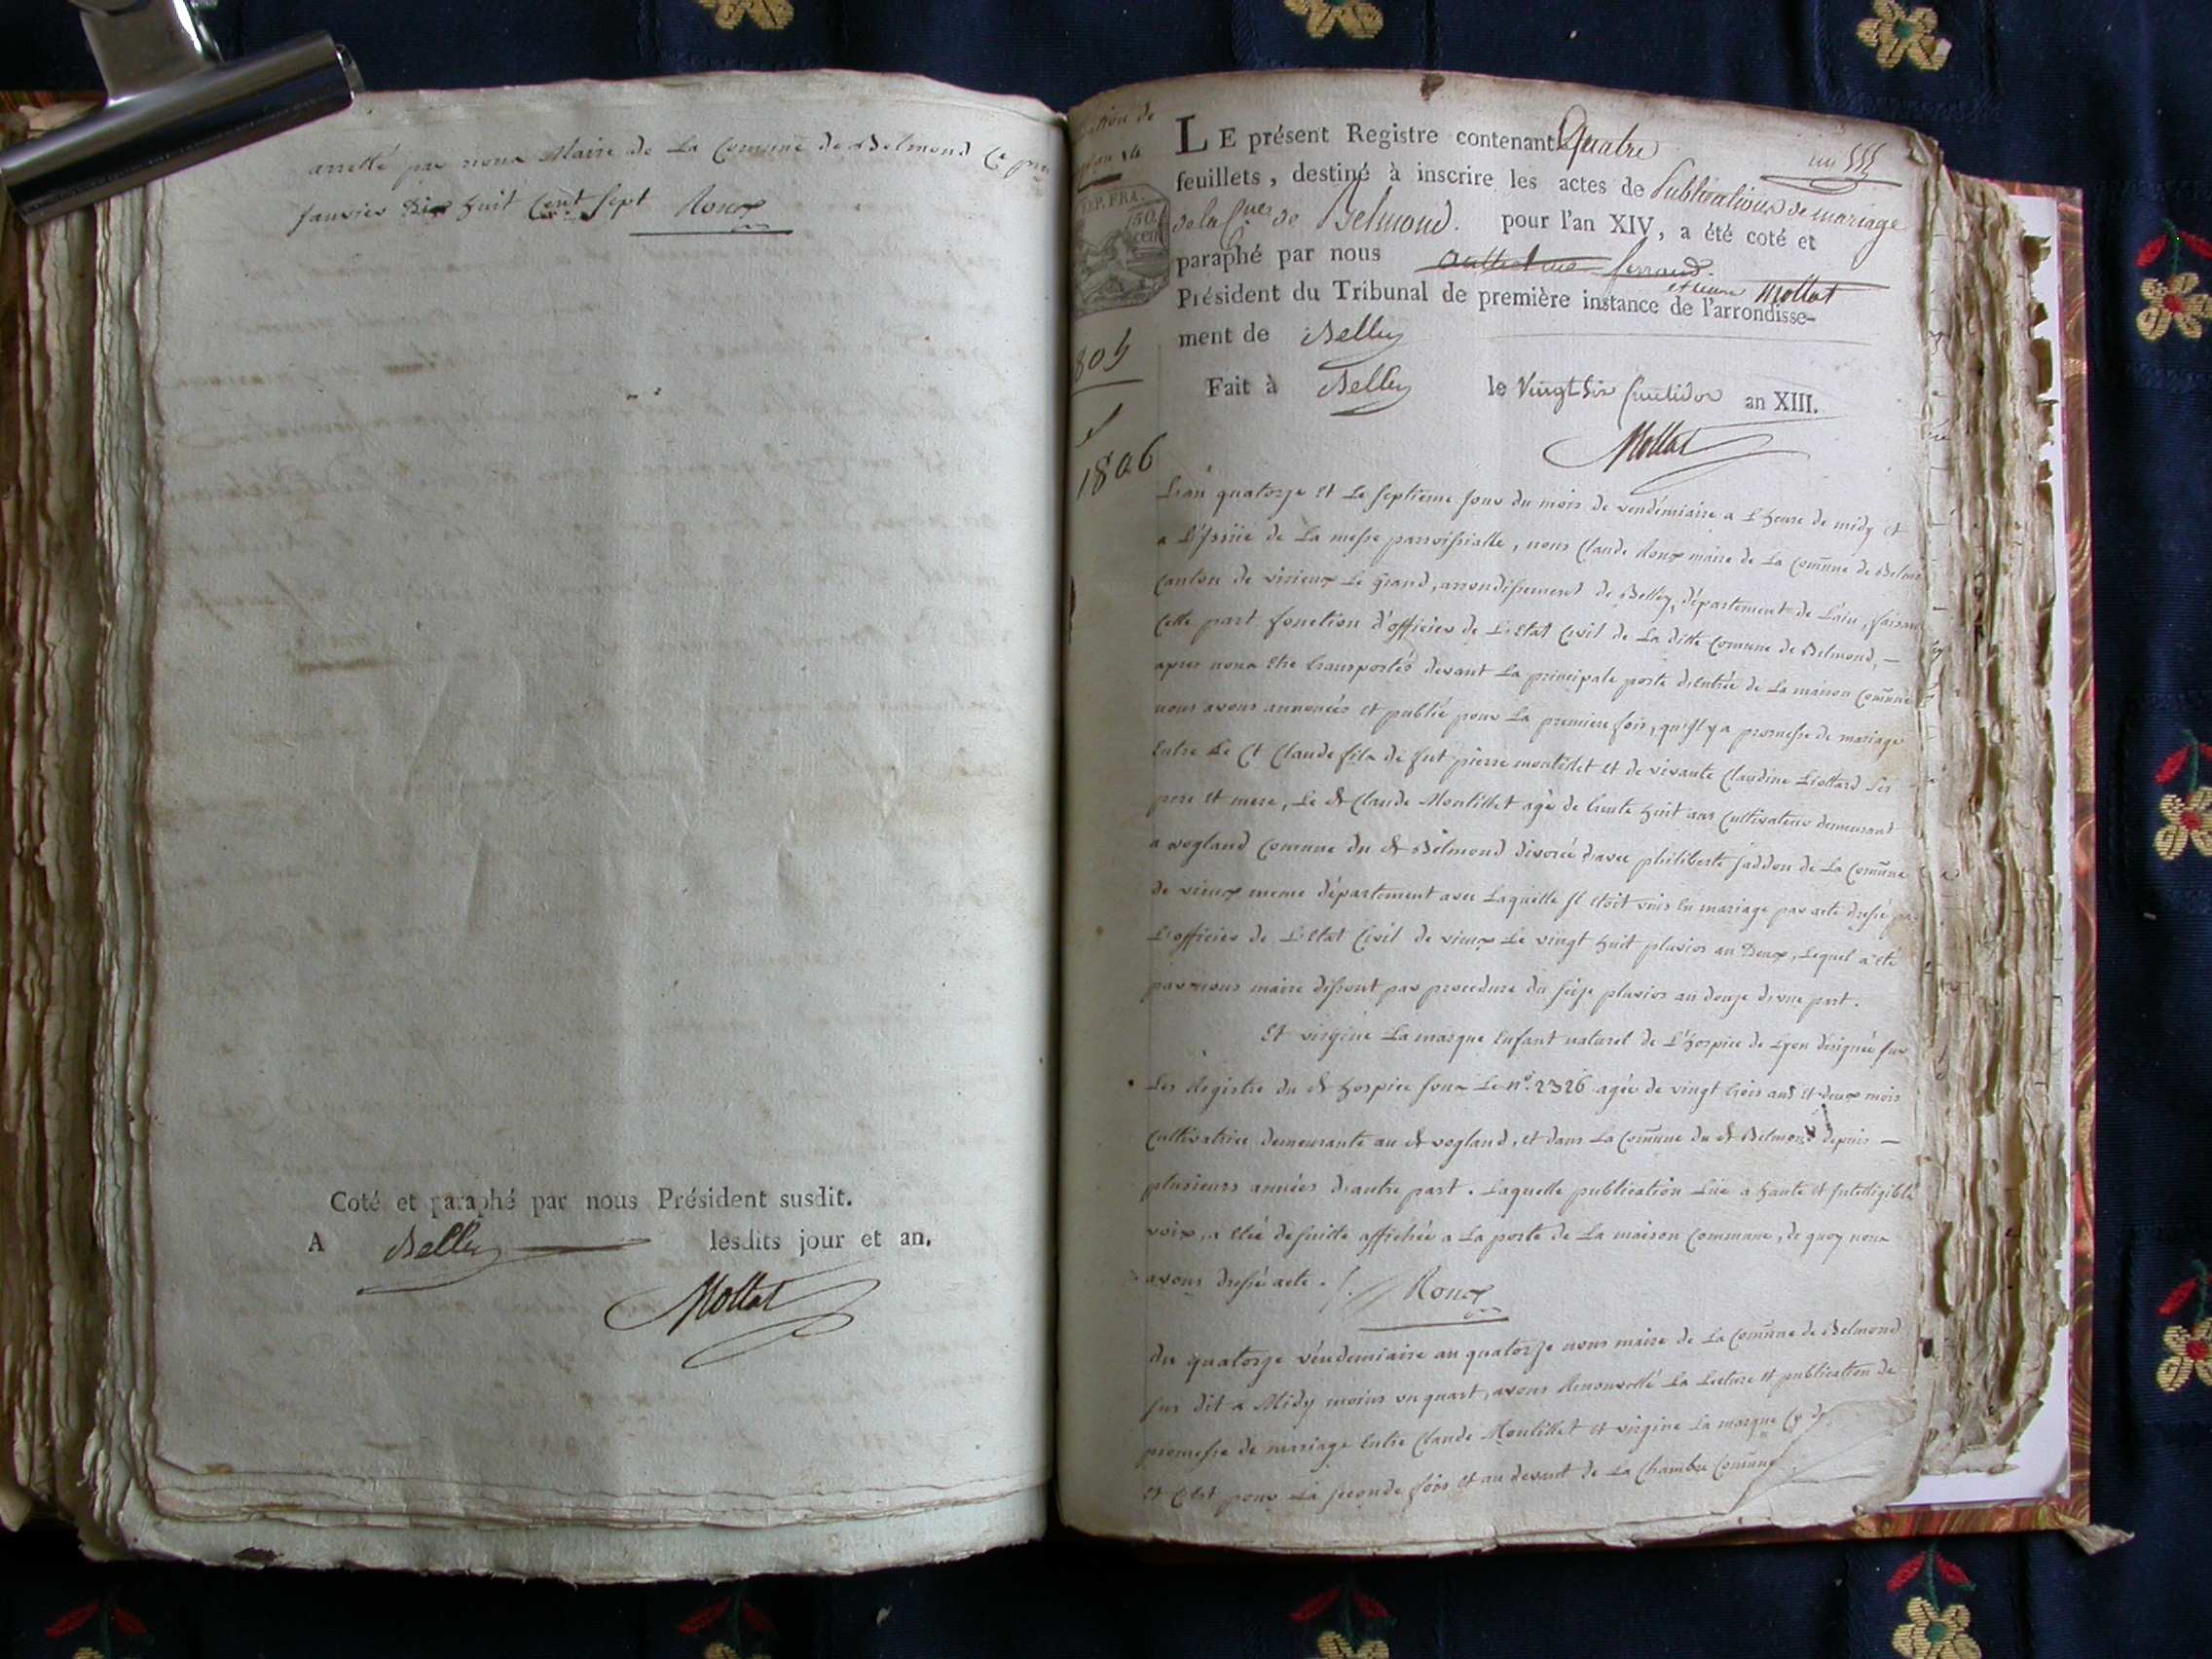 arretté par nous Maire de La Commune de Belmond Ce
Janvier Dix huit Cent Sept Roux
Coté et paraphé par nous Président susdit.
A Belley lesdits jour et an.
Mollat
TIMP. FRA.
50
cen
1806
LE présent Registre contenant Quatre
feuillets, destiné à inscrire les actes de Publications de mariage
de la de Belmond. pour l'an XIV, a été coté et
paraphé par nous Mollat
Président du Tribunal de première instance de l'arrondisse-
ment de Belley
Fait à Belley le Vingt Six fructidor an XIII.
Mollat
L'an quatorze et Le Septieme Jour du mois de vendémiaire a L'heure de midy et
a L'Issüe de La messe parroissialle, nous Claude Roux maire de La Comune de
Canton de virieux Le Grand, arrondissement de Belley, département de L'ain, faisant
Cette part fonction d'officier de L'Etat Civil de La ditte Comune de Belmond, —
apres nous etre transportés devant La principale porte d'Entrée de La maison Comune
nous avons annoncés et publié pour La premiere fois, qu'Il y a promesse de mariage
Entre Le Ct Claude fils de fut pierre montillet et de vivante Claudine Liottard Ses
pere et mere, Le dt Claude Montillet agé de trente huit ans Cultivateur demeurant
a vogland Comune du dt Belmond divorcé d'avec philiberte Jaddon de La Comune
de vieux meme département avec Laquelle Il etoit unis En mariage par acte dressé
L'officier de L'Etat Civil de vieux Le vingt huit pluvios an Deux, Lequel a été
par nous maire dissout par procedure du seize pluvios an douze d'une part.
Et virgine La masque Enfant naturel de L'hospice de Lyon désignée sur
Les Registre du dt hospice sous Le n°. 2326 agée de vingt trois ans et deux mois
Cultivatrice demeurante au dt vogland, et dans La Comune du dt Belmond depuis —
plusieurs années d'autre part. Laquelle publication Lüe a haute et Intelligible
voix, a été de suitte affichée a La porte de La maison Commune, de quoy nous
avons dressé acte. Roux
du quatorze vendemiaire an quatorze nous maire de La Comune de Belmond
sus dit a Midy moins un quart, avons Renouvellé La Lecture et publication de
promesse de mariage Entre Claude Montillet et virgine La masque
et C'est pour La seconde fois et au devant de La Chambre Comune